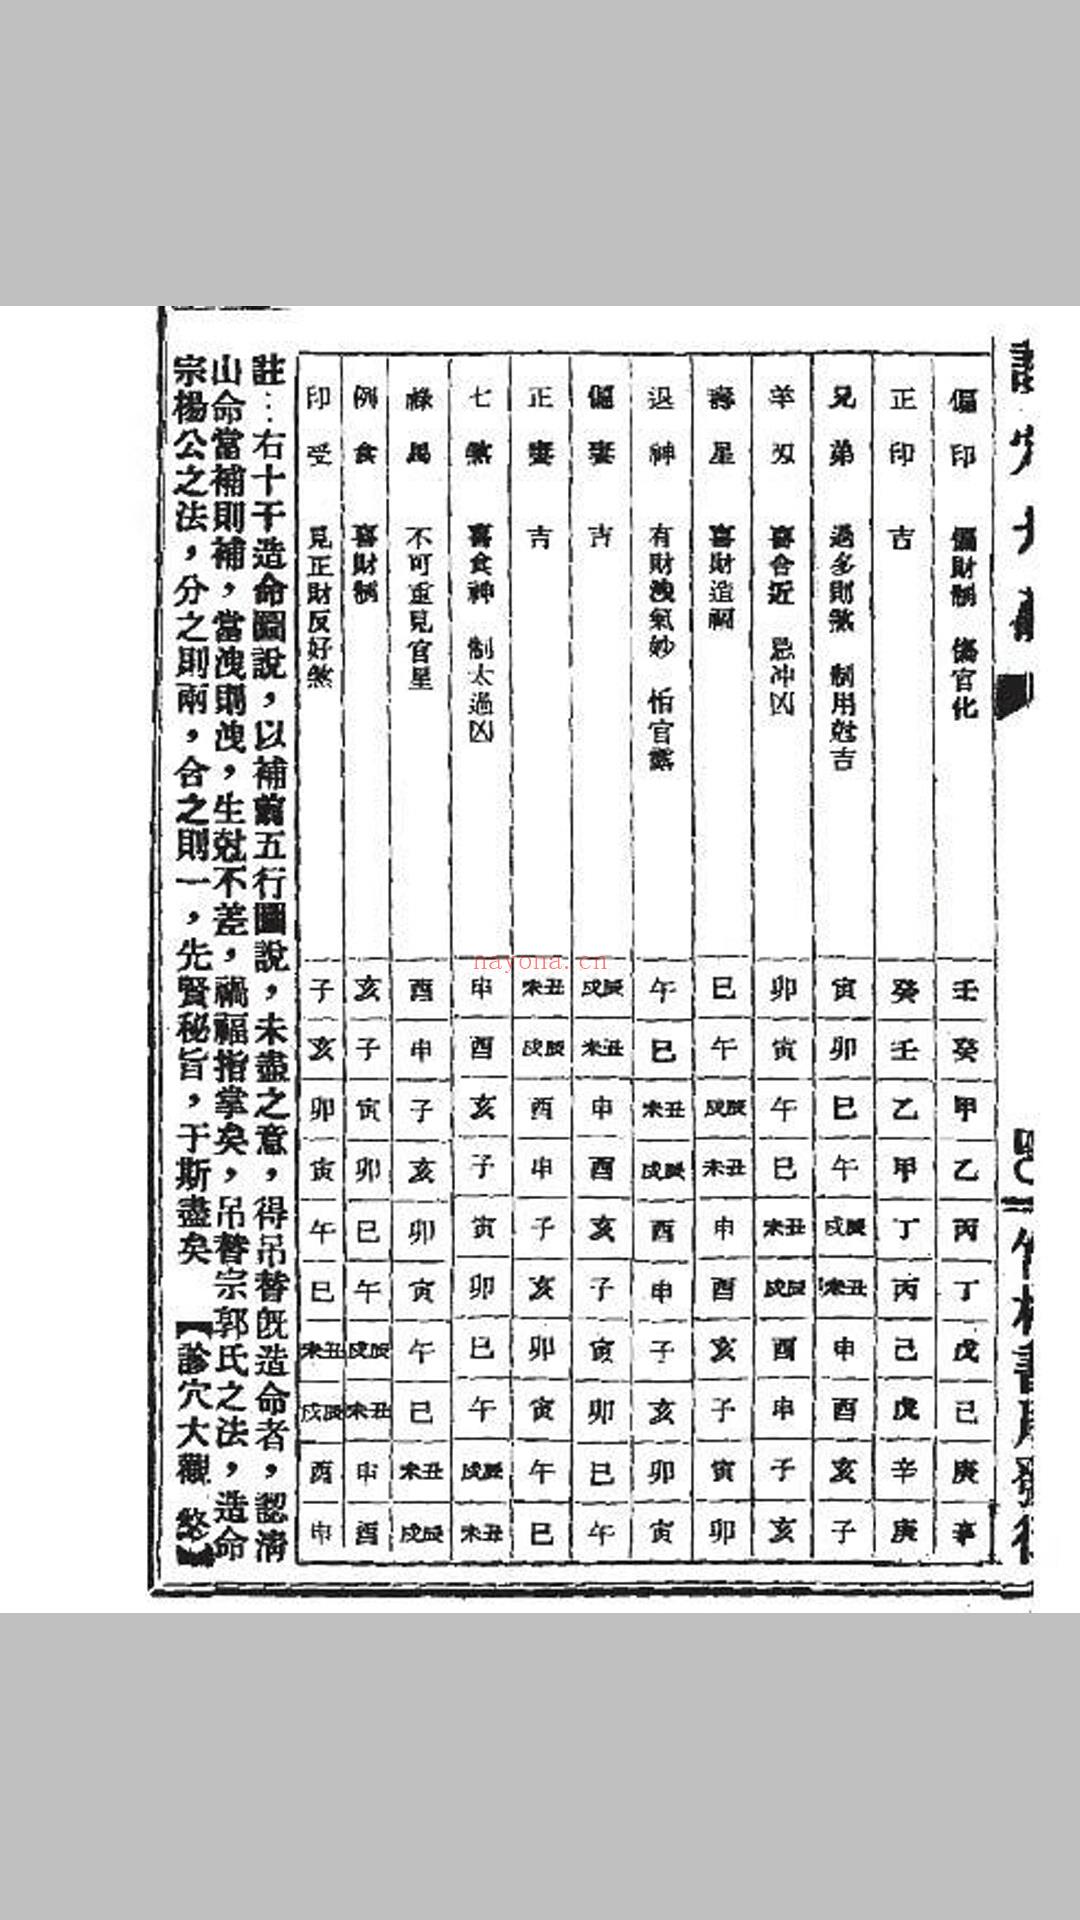 偏印　偏財制　傷官化　壬　癸　甲　乙　丙　丁　戊　己　庚　辛
正印　吉　癸　壬　乙　甲　丁　丙　己　戊　辛　庚
兄弟　過多則煞　制用尅吉　寅　卯　巳　午　戌辰　未丑　申　酉　亥　子
羊刃　喜合近　忌冲凶　卯　寅　午　巳　未丑　戌辰　酉　申　子　亥
壽星　喜財造福　巳　午　戌辰　未丑　申　酉　亥　子　寅　卯
退神　有財洩氣妙　怕官露　午　巳　未丑　戌辰　酉　申　子　亥　卯　寅
偏妻　吉　戌辰　未丑　申　酉　亥　子　寅　卯　巳　午
正妻　吉　未丑　戌辰　酉　申　子　亥　卯　寅　午　巳
七煞　喜食神　制太過凶　申　酉　亥　子　寅　卯　巳　午　戌辰　未丑
祿馬　不可重見官星　酉　申　子　亥　卯　寅　午　巳　未丑　戌辰
例食　喜財制　亥　子　寅　卯　巳　午　戌辰　未丑　申　酉
印受　見正財反好煞　子　亥　卯　寅　午　巳　未丑　戌辰　酉　申
註：右十干造命圖說，以補前五行圖說，未盡之意，得吊替旣造命者，認淸
山命當補則補，當洩則洩，生尅不差，禍福指掌矣，吊替宗郭氏之法，造命
宗楊公之法，分之則兩，合之則一，先賢秘旨，于斯盡矣　【診穴大觀　終】
nayona.cn